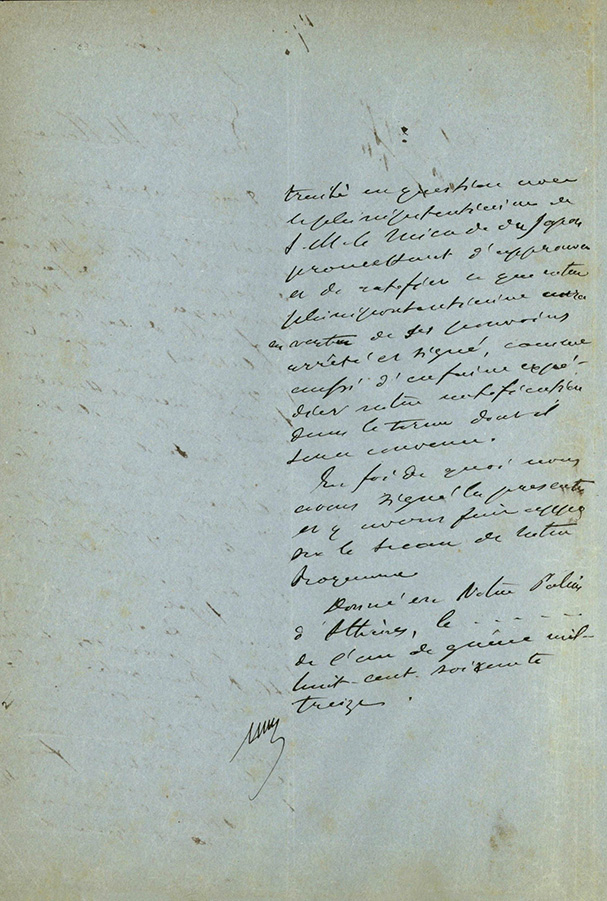 traité en question avec
le plénipotentiaire de
S. M. le Micade du Japon
promettant d'approuver
et de ratifier ce que notre
plénipotentiaire aura
en vertu de ses pouvoirs
arrêté et signé, comme
aussi d'en faire expé-
dier notre ratification
dans le terme dont il
sera convenu.
En foi de quoi nous
avons signé la présente
et y avons fait appo
ser le sceau de Notre
Royaume
Donné en Notre Palais
d'Athènes, le - - - - - -
de l'an de grâce mil-
huit-cent-soixante
treize.